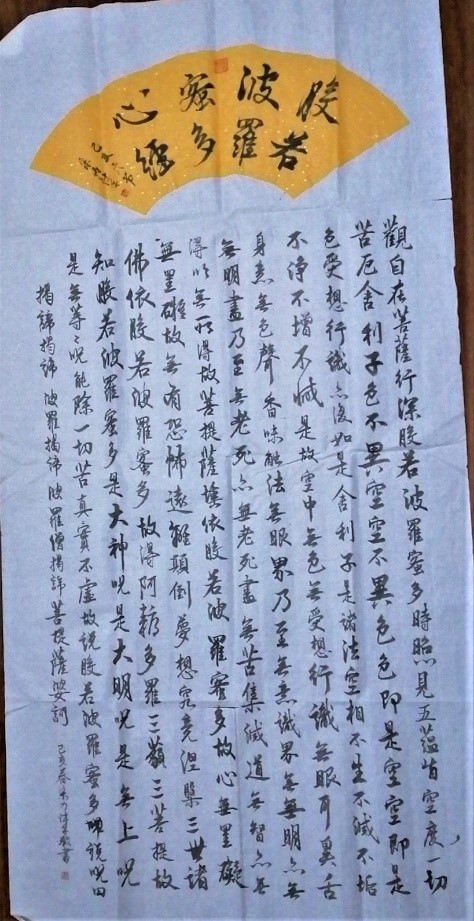 般若
波羅
蜜多
心經
己亥
觀自在菩薩行深般若波羅蜜多時照見五蘊皆空度一切
苦厄舍利子色不異空空不異色色即是空空即是
色受想行識亦復如是舍利子是諸法空相不生不滅不垢
不淨不增不減是故空中無色無受想行識無眼耳鼻舌
身意無色聲香味觸法無眼界乃至無意識界無無明亦無
無明盡乃至無老死亦無老死盡無苦集滅道無智亦無
得以無所得故菩提薩埵依般若波羅蜜多故心無罣礙
無罣礙故無有恐怖遠離顛倒夢想究竟涅槃三世諸
佛依般若波羅蜜多故得阿耨多羅三藐三菩提故
知般若波羅蜜多是大神呪是大明呪是無上呪
是無等々呪能除一切苦真實不虛故說般若波羅蜜多即說呪曰
揭諦揭諦波羅揭諦波羅僧揭諦菩提薩婆訶
己亥春 書